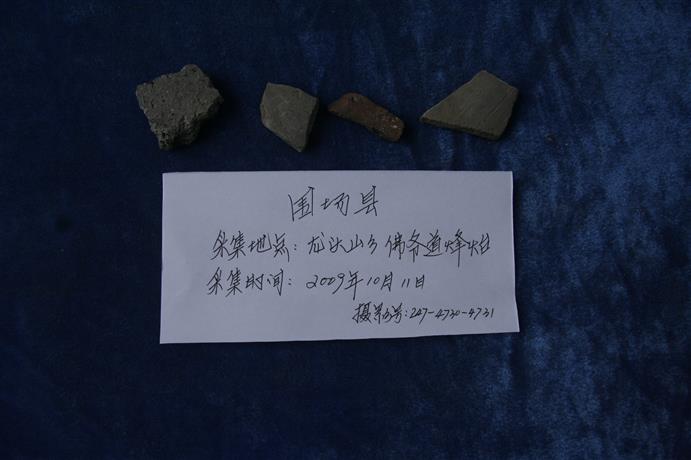 围场县
采集地点：龙头山乡佛爷道烽燧
采集时间：2009年10月11日
摄影号：247-4730-4731